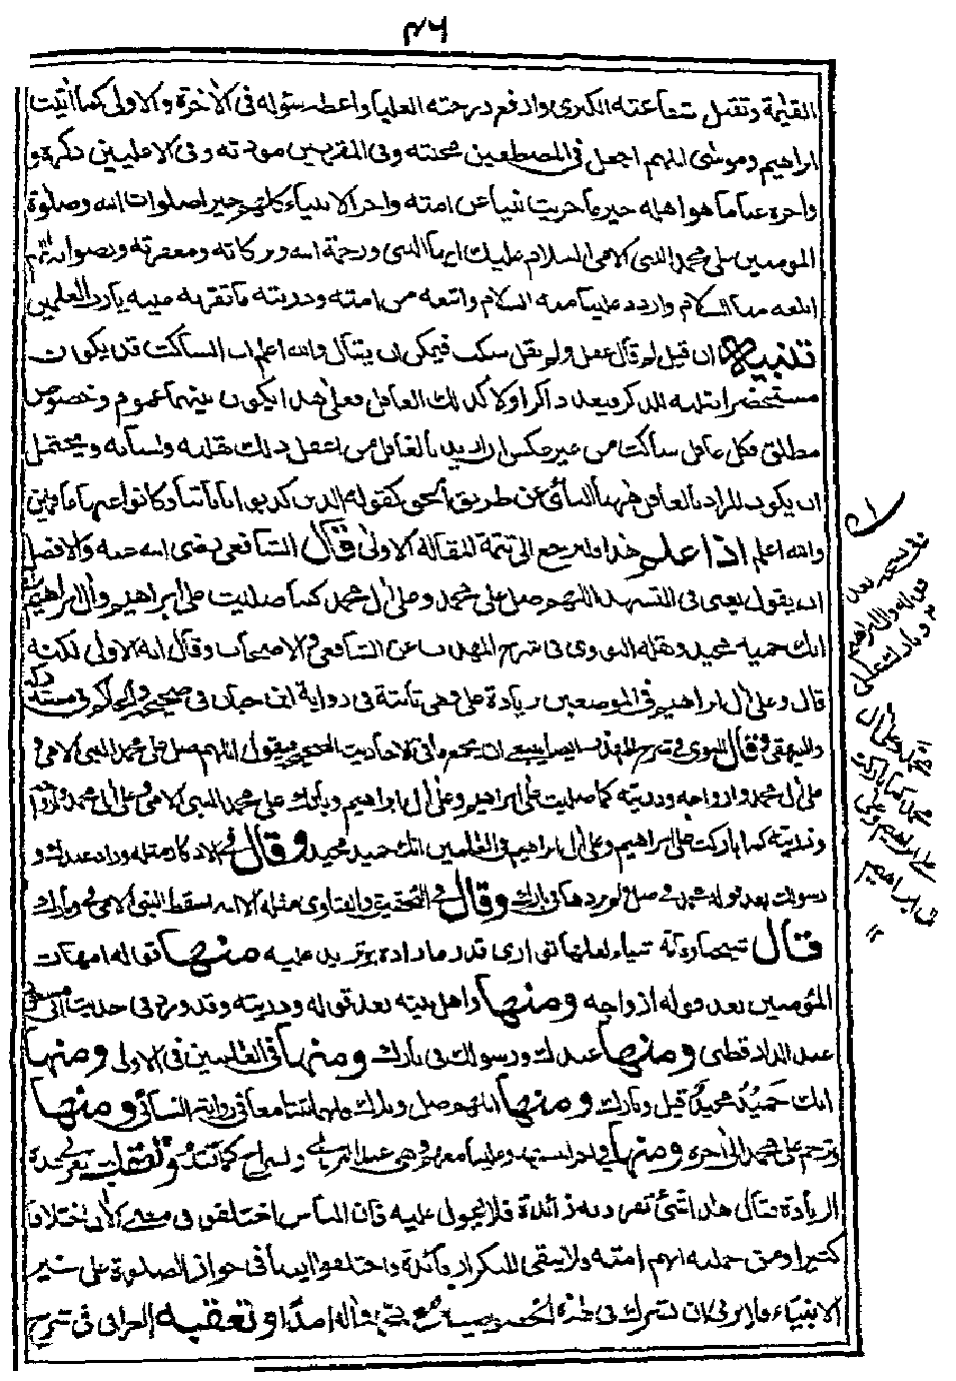 ٤٦
القيمة وتقبل شفاعته الكبرى وارفع درجته العليا واعطه سؤله فى الآخرة والاولى كما اتيت
ابراهيم وموسى اللهم اجعل فى المصطفين محبته وفى المقربين مودته وفى الاعليين ذكره و
واجزه عنا ما هو اهله خير ما جزيت نبيا عن امته واجز الانبياء كلهم خيرا صلوات الله وصلوة
المومنين على محمد النبى الامى السلام عليك ايها النبى ورحمة الله وبركاته ومغفرته ورضوانه اللهم
ابلغه منا السلام واردد علينا منه السلام واتبعه من امته وذريته ما تقر به عينه يا رب العلمين
تنبيه ان قيل لم قال غفل ولم يقل سكت فيمكن ان يقال والله اعلم ان الساكت قد يكون
مستحضرا بقلبه الذكر فيعد ذاكرا ولا كذلك الغافل فعلى هذا يكون بينهما عموم وخصوص
مطلق فكل غافل ساكت من غير عكس ان اريد بالغافل من اغفل ذلك بقلبه ولسانه ويحتمل
ان يكون المراد بالغافل كقوله الذين كذبوا باياتنا وكانوا عنها غافلين
والله اعلم اذا علم هذا فلنرجع الى تتمة المقالة الاولى فقال الشافعى رضى الله عنه والافضل
ان يقول يعنى فى التشهد اللهم صل على محمد وعلى آل محمد كما صليت على ابراهيم وآل ابراهيم
انك حميد مجيد ونقله النووى فى شرح المهذب عن الشافعى والاصحاب وقال انه الاولى لكنه
قال وعلى آل ابراهيم فى الموضعين بزيادة على وهى ثابتة فى رواية ابن حبان فى صحيحه والحاكم فى مستدركه
والبيهقى وقال النووى فى شرح المهذب ايضا ينبغى ان تجمع ما فى الاحاديث الصحيحة فيقول اللهم صل على محمد النبى الامى و
على آل محمد وازواجه وذريته كما صليت على ابراهيم وعلى آل ابراهيم وبارك على محمد النبى الامى وعلى آل محمد وازواجه
وذريته كما باركت على ابراهيم وعلى آل ابراهيم فى العلمين انك حميد مجيد وقال فى الاذكار مثله وزاد عبدك و
رسولك بعد قوله محمد فى صل ولم يزدها فى بارك وقال فى التحقيق والفتاوى مثله الا انه اسقط النبى الامى فى وبارك
قال شيخنا وفاته اشياء لعلها توازى قدر ما زاده او تزيد عليه منها قوله امهات
المؤمنين بعد قوله ازواجه ومنها واهل بيته بعد قوله وذريته وقد ورد فى حديث ابى مسعود
عند الدارقطنى ومنها عبدك ورسولك فى بارك ومنها فى العلمين فى الاولى ومنها
انك حميد مجيد قبل وبارك ومنها اللهم صل وبارك فانهما ثبتا معا فى رواية النسائى ومنها
وترحم على محمد الى آخره ومنها فى آخر التشهد وعلينا معهم وهى عند الترمذى
الزيادة فقال هذا شىء تفرد به زائدة فلا يعول عليه فان الناس اختلفوا فى معنى الآل اختلافا
كثيرا ومن جملته انهم امته ولا يبقى للتكرار فائدة واختلفوا ايضا فى جواز الصلوة على غير
الانبياء فلا نرى ان نشرك فى هذه الخصوصية مع محمد وآله احدا وتعقبه العراقى فى شرح